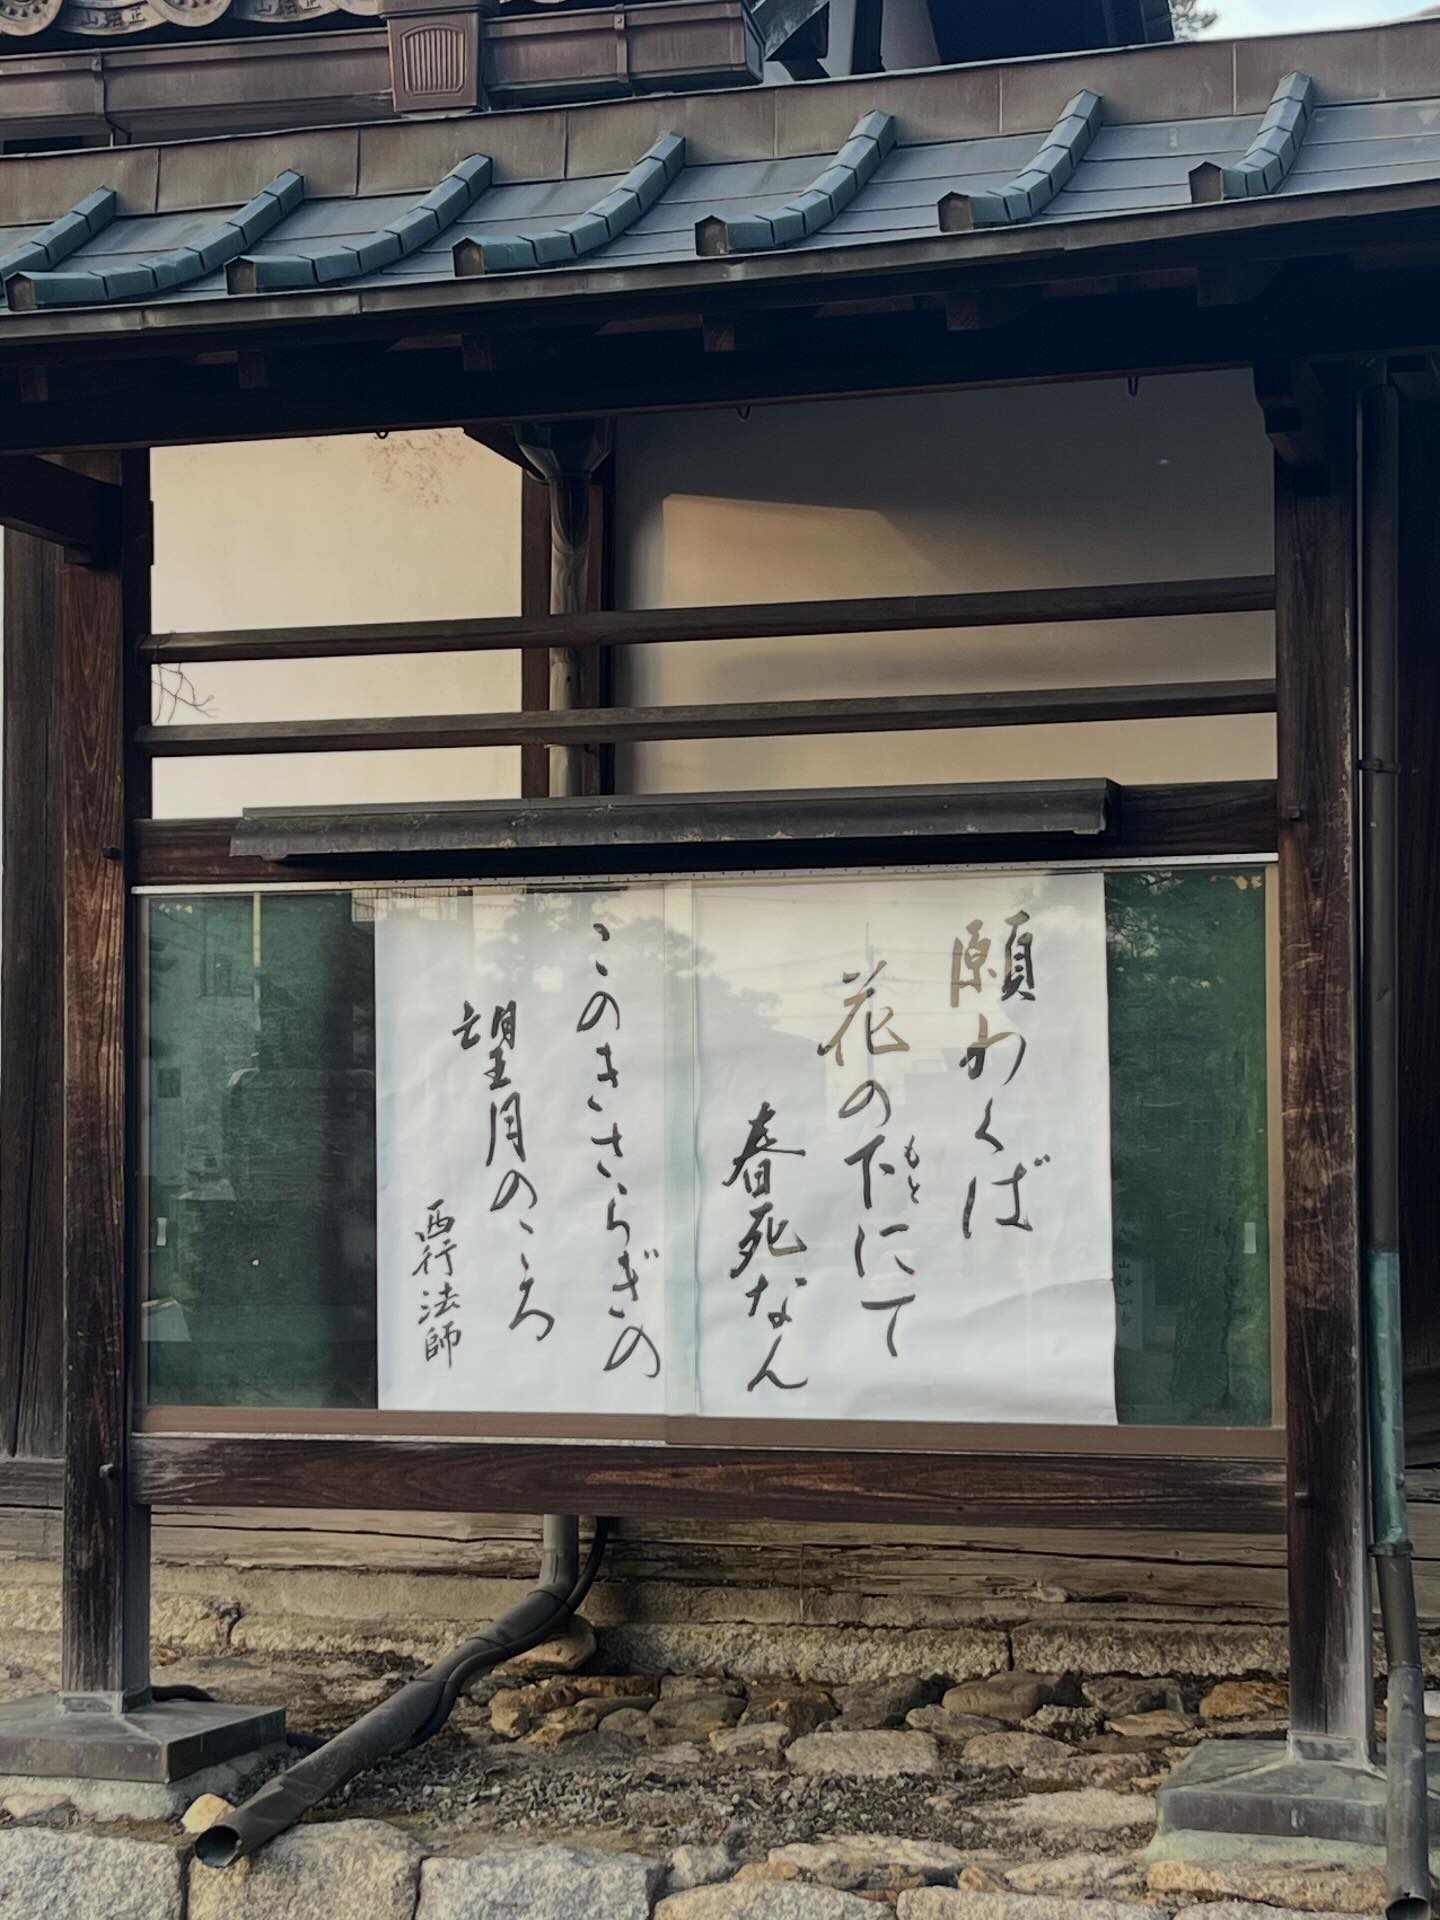 願わくば
花の下にて
もと
春死なん
このきさらぎの
望月のころ
西行法師